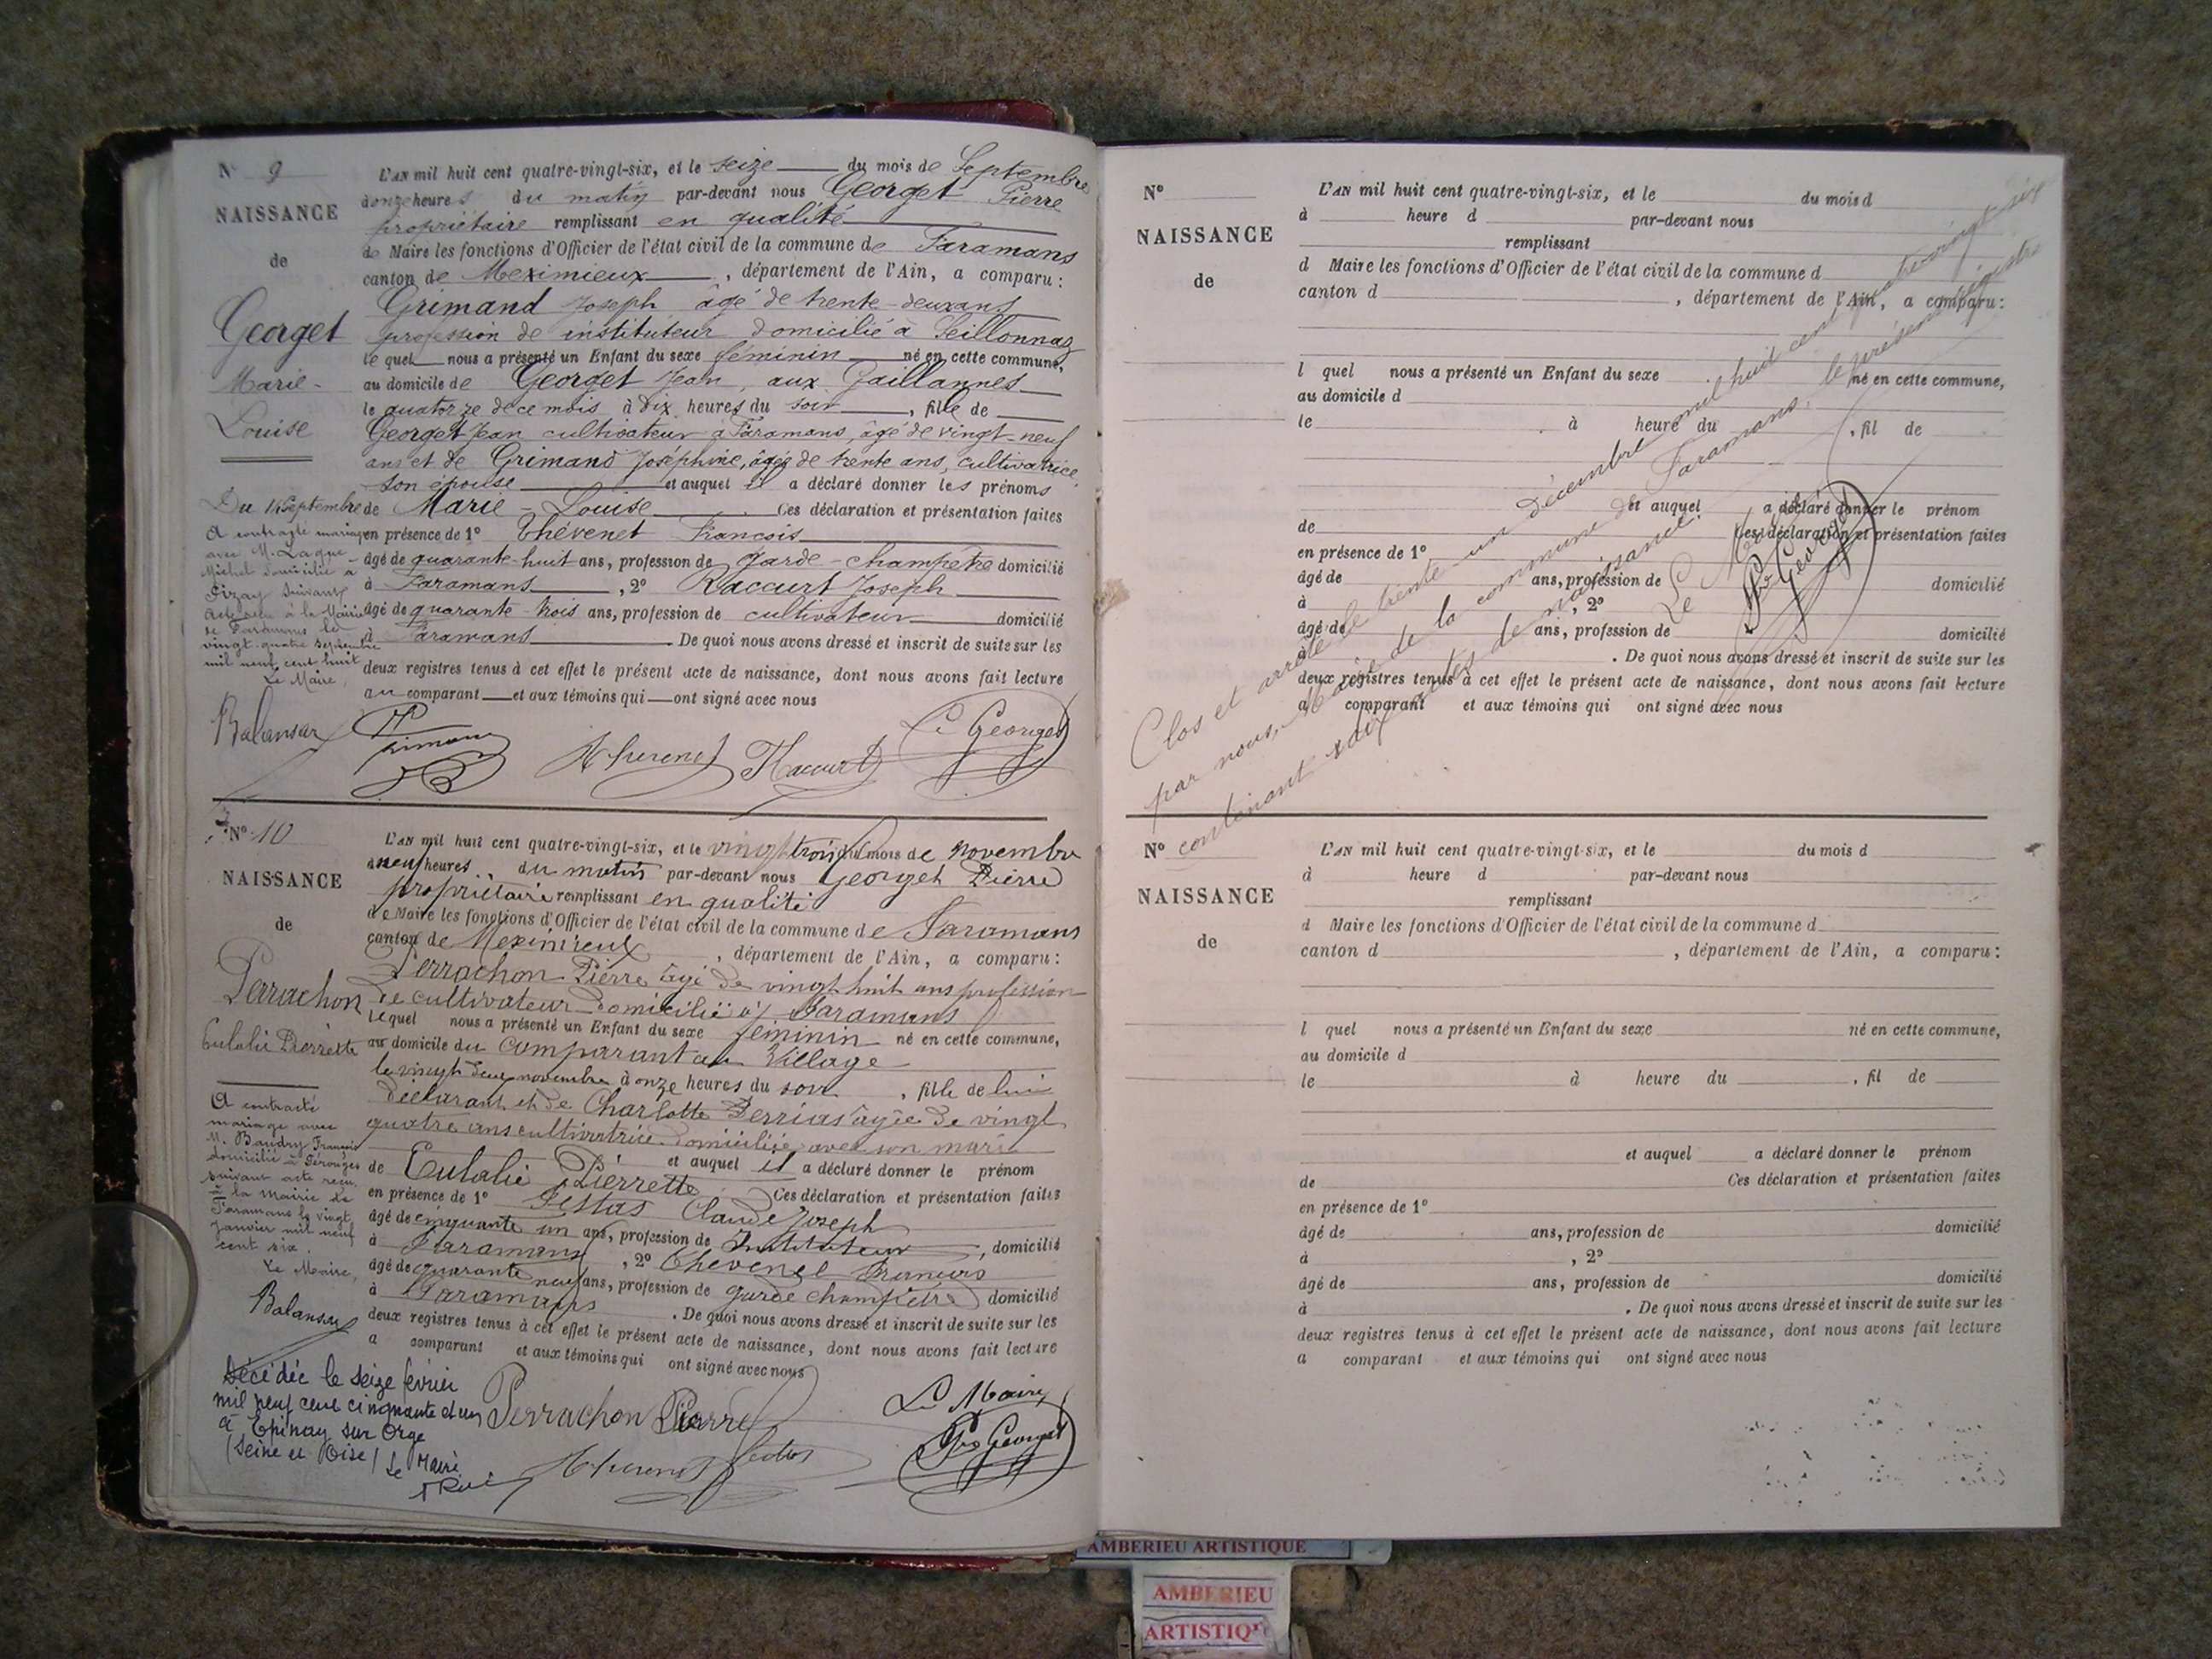 N° 9
NAISSANCE
de
Georget
Marie-
Louise
Du 14 Septembre
A contracté mariage
avec M. Laque
Michel domicilié à
Pizay suivant
acte reçu à la Mairie
de Faramans le
vingt-quatre septembre
mil neuf cent huit
Le Maire,
Balansay
L'AN mil huit cent quatre-vingt-six, et le seize du mois de Septembre
à onze heures du matin par-devant nous Georget Pierre
propriétaire remplissant en qualité
de Maire les fonctions d'Officier de l'état civil de la commune de Faramans
canton de Meximieux, département de l'Ain, a comparu:
Grimand Joseph âgé de trente-deux ans
profession de instituteur domicilié à Seillonnaz
lequel nous a présenté un Enfant du sexe féminin né en cette commune,
au domicile de Georget Jean, aux Gaillannes
le quatorze de ce mois à dix heures du soir, fille de
Georget Jean cultivateur à Faramans, âgé de vingt-neuf
ans et de Grimand Joséphine, âgée de trente ans, cultivatrice
son épouse et auquel il a déclaré donner les prénoms
de Marie-Louise Ces déclaration et présentation faites
en présence de 1° Thévenet Francois
âgé de quarante-huit ans, profession de garde-champêtre domicilié
à Faramans, 2° Raccurt Joseph
âgé de quarante-trois ans, profession de cultivateur domicilié
à Faramans. De quoi nous avons dressé et inscrit de suite sur les
deux registres tenus à cet effet le présent acte de naissance, dont nous avons fait lecture
au comparant et aux témoins qui ont signé avec nous
Grimand Thevenet Raccurt P. Georget
N° 10
NAISSANCE
de
Perrachon
Eulalie Pierrette
A contracté
mariage avec
M. Baudry François
domicilié à Pérouges
suivant acte reçu
à la Mairie de
Faramans le vingt
janvier mil neuf
cent six.
Le Maire,
Balansay
Décédée le seize février
mil neuf cent cinquante et un
à Epinay sur Orge
(Seine et Oise) Le Maire
L'AN mil huit cent quatre-vingt-six, et le vingt trois du mois de novembre
à neuf heures du matin par-devant nous Georget Pierre
propriétaire remplissant en qualité
de Maire les fonctions d'Officier de l'état civil de la commune de Faramans
canton de Meximieux, département de l'Ain, a comparu:
Perrachon Pierre âgé de vingt huit ans profession
de cultivateur domicilié à Faramans
lequel nous a présenté un Enfant du sexe féminin né en cette commune,
au domicile du comparant au Village
le vingt deux novembre à onze heures du soir, fille de lui
déclarant et de Charlotte Perrias âgée de vingt
quatre ans cultivatrice domiciliée avec son mari
et auquel il a déclaré donner le prénom
de Eulalie Pierrette Ces déclaration et présentation faites
en présence de 1° Festas Claude Joseph
âgé de cinquante un ans, profession de Instituteur, domicilié
à Faramans, 2° Thevenet Francois
âgé de quarante neuf ans, profession de garde champêtre domicilié
à Faramans. De quoi nous avons dressé et inscrit de suite sur les
deux registres tenus à cet effet le présent acte de naissance, dont nous avons fait lecture
a comparant et aux témoins qui ont signé avec nous
Perrachon Pierre
Le Maire
Thevenet Festas
Pre Georget
N°
NAISSANCE
de
L'AN mil huit cent quatre-vingt-six, et le du mois d
à heure d par-devant nous
remplissant
d Maire les fonctions d'Officier de l'état civil de la commune d
canton d , département de l'Ain, a comparu:
l quel nous a présenté un Enfant du sexe né en cette commune,
au domicile d
le à heure du , fil de
et auquel a déclaré donner le prénom
de Ces déclaration et présentation faites
en présence de 1°
âgé de ans, profession de domicilié
à , 2°
âgé de ans, profession de domicilié
à . De quoi nous avons dressé et inscrit de suite sur les
deux registres tenus à cet effet le présent acte de naissance, dont nous avons fait lecture
a comparant et aux témoins qui ont signé avec nous
Clos et arrêté le trente un décembre mil huit cent quatre vingt six
par nous, Maire de la commune de Faramans, le présent registre
contenant dix actes de naissance.
Le Maire
Pre Georget
N°
NAISSANCE
de
L'AN mil huit cent quatre-vingt-six, et le du mois d
à heure d par-devant nous
remplissant
d Maire les fonctions d'Officier de l'état civil de la commune d
canton d , département de l'Ain, a comparu:
l quel nous a présenté un Enfant du sexe né en cette commune,
au domicile d
le à heure du , fil de
et auquel a déclaré donner le prénom
de Ces déclaration et présentation faites
en présence de 1°
âgé de ans, profession de domicilié
à , 2°
âgé de ans, profession de domicilié
à . De quoi nous avons dressé et inscrit de suite sur les
deux registres tenus à cet effet le présent acte de naissance, dont nous avons fait lecture
a comparant et aux témoins qui ont signé avec nous
AMBERIEU ARTISTIQUE
AMBERIEU
ARTISTIQU